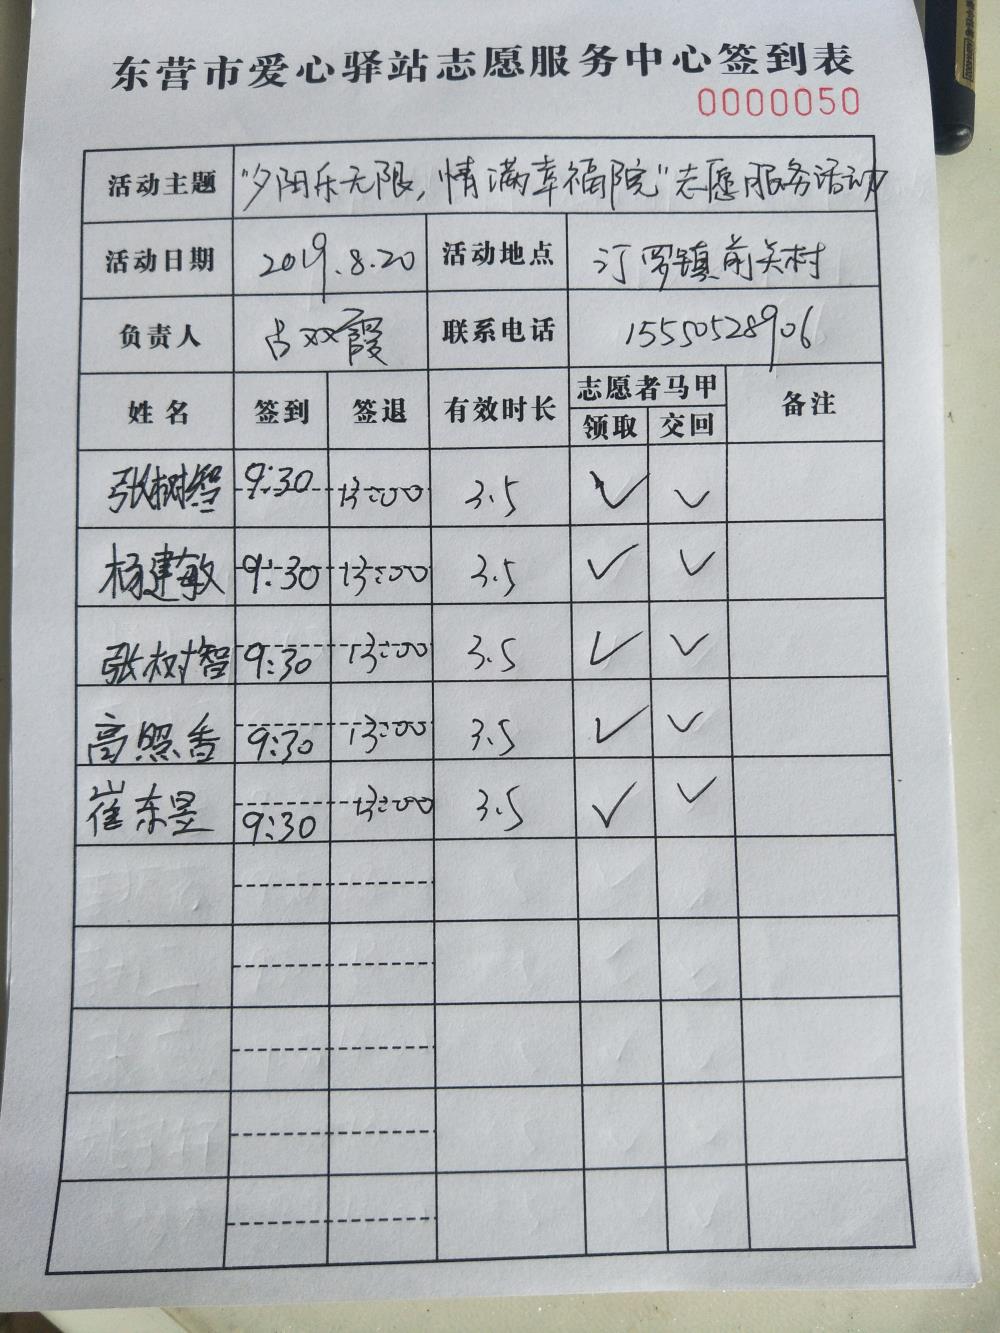 东营市爱心驿站志愿服务中心签到表
0000050
活动主题 "夕阳乐无限，情满幸福院"志愿服务活动
活动日期 2019.8.20 活动地点 汀罗镇前关村
负责人 古双霞 联系电话 15550528906
姓名 签到 签退 有效时长 志愿者马甲 备注
领取 交回
张树智 9:30 13:00 3.5 ✓ ✓
杨建敏 9:30 13:00 3.5 ✓ ✓
张树智 9:30 13:00 3.5 ✓ ✓
高照香 9:30 13:00 3.5 ✓ ✓
崔东昱 9:30 13:00 3.5 ✓ ✓